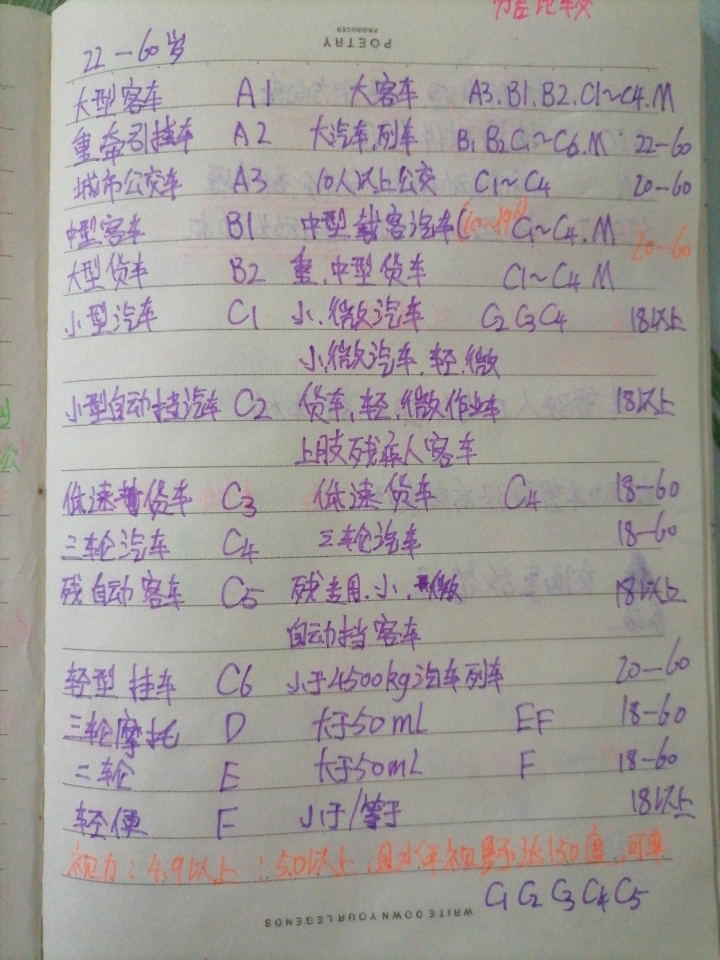 22—60岁
POETRY
PRODUCED
大型客车 A1 大客车 A3.B1.B2.C1~C4.M
重牵引挂车 A2 大汽车,列车 B1 B2 C1~C6.M 22—60
城市公交车 A3 10人以上公交 C1~C4 20—60
中型客车 B1 中型载客汽车(10~19) C1~C4.M 20—60
大型货车 B2 重,中型货车 C1~C4 M
小型汽车 C1 小,微汽车 C2 C3 C4 18以上
小微汽车,轻,微
小型自动挡汽车 C2 货车,轻,微作业车 18以上
上肢残疾人客车
低速货车 C3 低速货车 C4 18—60
三轮汽车 C4 三轮汽车 18—60
残自动客车 C5 残专用.小.微 18以上
自动挡客车
轻型挂车 C6 小于4500kg汽车列车 20—60
三轮摩托 D 大于50mL EF 18—60
二轮 E 大于50mL F 18—60
轻便 F 小于/等于 18以上
视力:4.9以上:5.0以上,且水平视野达150度,可
C1 C2 C3 C4 C5
WRITE DOWN YOUR LEGENDS